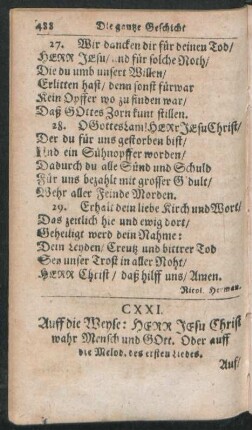 488 Die gantze Geschicht
27. Wir dancken dir für deinen Tod/
HERR JEsu/ und für solche Noth/
Die du umb unsert Willen/
Erlitten hast/ denn sonst fürwar
Kein Opffer wo zu finden war/
Daß GOttes Zorn kunt stillen.
28. O Gotteslam! HErr JEsu Christ/
Der du für uns gestorben bist/
Und ein Sühnopffer worden/
Dadurch du alle Sünd und Schuld
Für uns bezahlt mit grosser G'dult/
Wehr aller Feinde Morden.
29. Erhalt dein liebe Kirch und Wort/
Das zeitlich hie und ewig dort/
Geheiligt werd dein Nahme:
Dein Leyden/ Creutz und bittrer Tod
Sey unser Trost in aller Noht/
HERR Christ/ daß hilff uns/ Amen.
Nicol. Herman.
CXXI.
Auff die Weyse: HERR JEsu Christ
wahr Mensch und GOtt. Oder auff
die Melod. des ersten Liedes.
Auf/